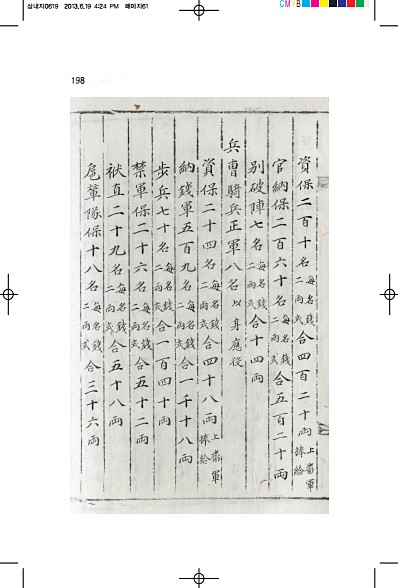 삼내지0619 2013.6.19 4:24 PM 페이지61
CMYB
198
資保二百十名每名錢二両式合四百二十両上番軍捧給
官納保二百六十名每名錢二両式合五百二十両
別破陣七名每名錢二両式合十四両
兵曹騎兵正軍八名以身應役
資保二十四名每名錢二両式合四十八両上番軍捧給
納錢軍五百九名每名錢二両式合一千十八両
步兵七十名每名錢二両式合一百四十両
禁軍保二十六名每名錢二両式合五十二両
袱直二十九名每名錢二両式合五十八両
扈輦隊保十八名每名錢二両式合三十六両